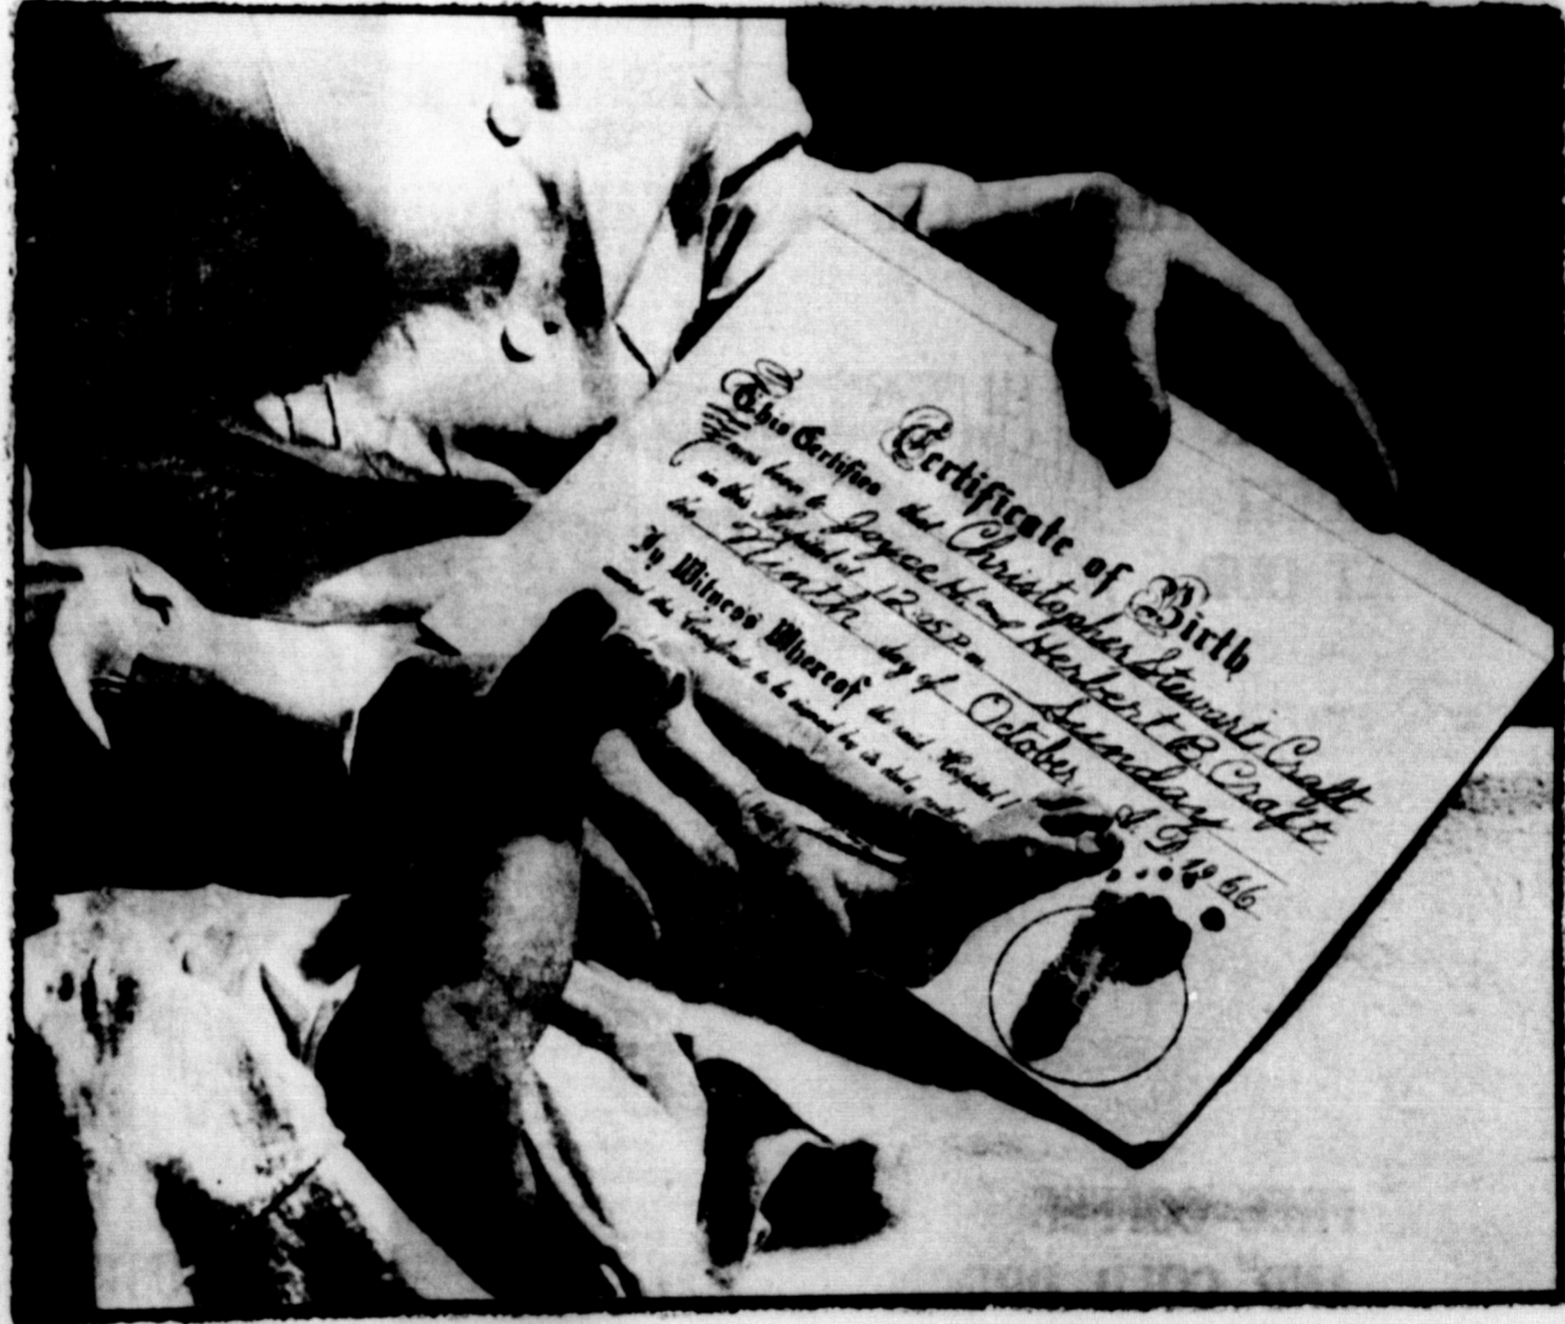 Certificate of Birth
This Certifies that Christopher Stewart Craft
was born to Joyce H. and Herbert B. Craft
in this Hospital at 12:05 P.m. Sunday
the Ninth day of October, A.D. 1966
In Witness Whereof the said Hospital
caused this Certificate to be signed by its duly